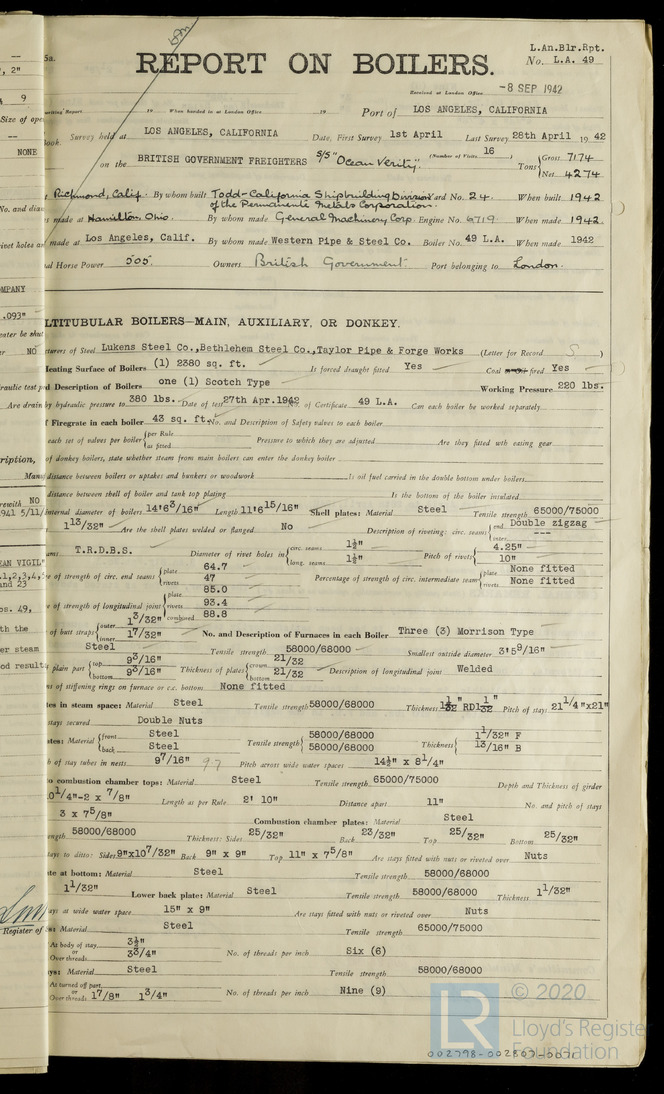 L.An.Blr.Rpt.
No. L.A. 49
REPORT ON BOILERS.
Received at London Office -8 SEP 1942
writing Report 19 When handed in at London Office 19 Port of LOS ANGELES, CALIFORNIA
Survey held at LOS ANGELES, CALIFORNIA Date, First Survey 1st April Last Survey 28th April 1942
on the BRITISH GOVERNMENT FREIGHTERS S/S "Ocean Verity" (Number of Visits 16 Tons Gross 7174
Net 4274
Richmond, Calif. By whom built Todd-California Shipbuilding Division of the Permanente Metals Corporation. Yard No. 24. When built 1942
made at Hamilton, Ohio. By whom made General Machinery Corp. Engine No. 6719 When made 1942
made at Los Angeles, Calif. By whom made Western Pipe & Steel Co. Boiler No. 49 L.A. When made 1942
Horse Power 505. Owners British Government. Port belonging to London.
LTITUBULAR BOILERS—MAIN, AUXILIARY, OR DONKEY.
turers of Steel Lukens Steel Co.,Bethlehem Steel Co.,Taylor Pipe & Forge Works (Letter for Record S )
Heating Surface of Boilers (1) 2380 sq. ft. Is forced draught fitted Yes Coal or oil fired Yes
d Description of Boilers one (1) Scotch Type Working Pressure 220 lbs.
by hydraulic pressure to 380 lbs. Date of test 27th Apr.1942 No. of Certificate 49 L.A. Can each boiler be worked separately
Firegrate in each boiler 43 sq. ft. No. and Description of Safety valves to each boiler
each set of valves per boiler per Rule as fitted Pressure to which they are adjusted Are they fitted with easing gear
of donkey boilers, state whether steam from main boilers can enter the donkey boiler
distance between boilers or uptakes and bunkers or woodwork Is oil fuel carried in the double bottom under boilers
distance between shell of boiler and tank top plating Is the bottom of the boiler insulated
internal diameter of boilers 14'6 3/16" Length 11'6 15/16" Shell plates: Material Steel Tensile strength 65000/75000
1 13/32" Are the shell plates welded or flanged No Description of riveting: circ. seams end Double zigzag
inter. ---
T.R.D.B.S. Diameter of rivet holes in circ. seams 1½" long. seams 1½" Pitch of rivets 4.25"
10"
of strength of circ. end seams plate 64.7 rivets 47 Percentage of strength of circ. intermediate seam plate None fitted
rivets None fitted
of strength of longitudinal joint plate 85.0 rivets 93.4 combined 88.8
of butt straps outer 1 3/32" inner 17/32" No. and Description of Furnaces in each Boiler Three (3) Morrison Type
Steel Tensile strength 58000/68000 Smallest outside diameter 3'5 9/16"
plain part top 9 3/16" bottom 9 3/16" Thickness of plates crown 21/32 bottom 21/32 Description of longitudinal joint Welded
of stiffening rings on furnace or c.c. bottom None fitted
tes in steam space: Material Steel Tensile strength 58000/68000 Thickness Pitch of stays 21 1/4"x21"
stays secured Double Nuts
ates: Material front Steel back Steel Tensile strength 58000/68000 58000/68000 Thickness 1 1/32" F
13/16" B
h of stay tubes in nests 9 7/16" Pitch across wide water spaces 14½" x 8 1/4"
o combustion chamber tops: Material Steel Tensile strength 65000/75000 Depth and Thickness of girder
10 1/4"-2 x 7/8" Length as per Rule 2' 10" Distance apart 11" No. and pitch of stays
3 x 7 5/8" Combustion chamber plates: Material Steel
58000/68000 Thickness: Sides 25/32" Back 23/32" Top 25/32" Bottom 25/32"
tays to ditto: Sides 9"x10 7/32" Back 9" x 9" Top 11" x 7 5/8" Are stays fitted with nuts or riveted over Nuts
te at bottom: Material Steel Tensile strength 58000/68000
1 1/32" Lower back plate: Material Steel Tensile strength 58000/68000 Thickness 1 1/32"
ays at wide water space 15" x 9" Are stays fitted with nuts or riveted over Nuts
Material Steel Tensile strength 65000/75000
At body of stay 3½" or Over threads 3 3/4" No. of threads per inch Six (6)
ays: Material Steel Tensile strength 58000/68000
At turned off part or Over threads 1 7/8" 1 3/4" No. of threads per inch Nine (9)
LR
© 2020
Lloyd's Register
Foundation